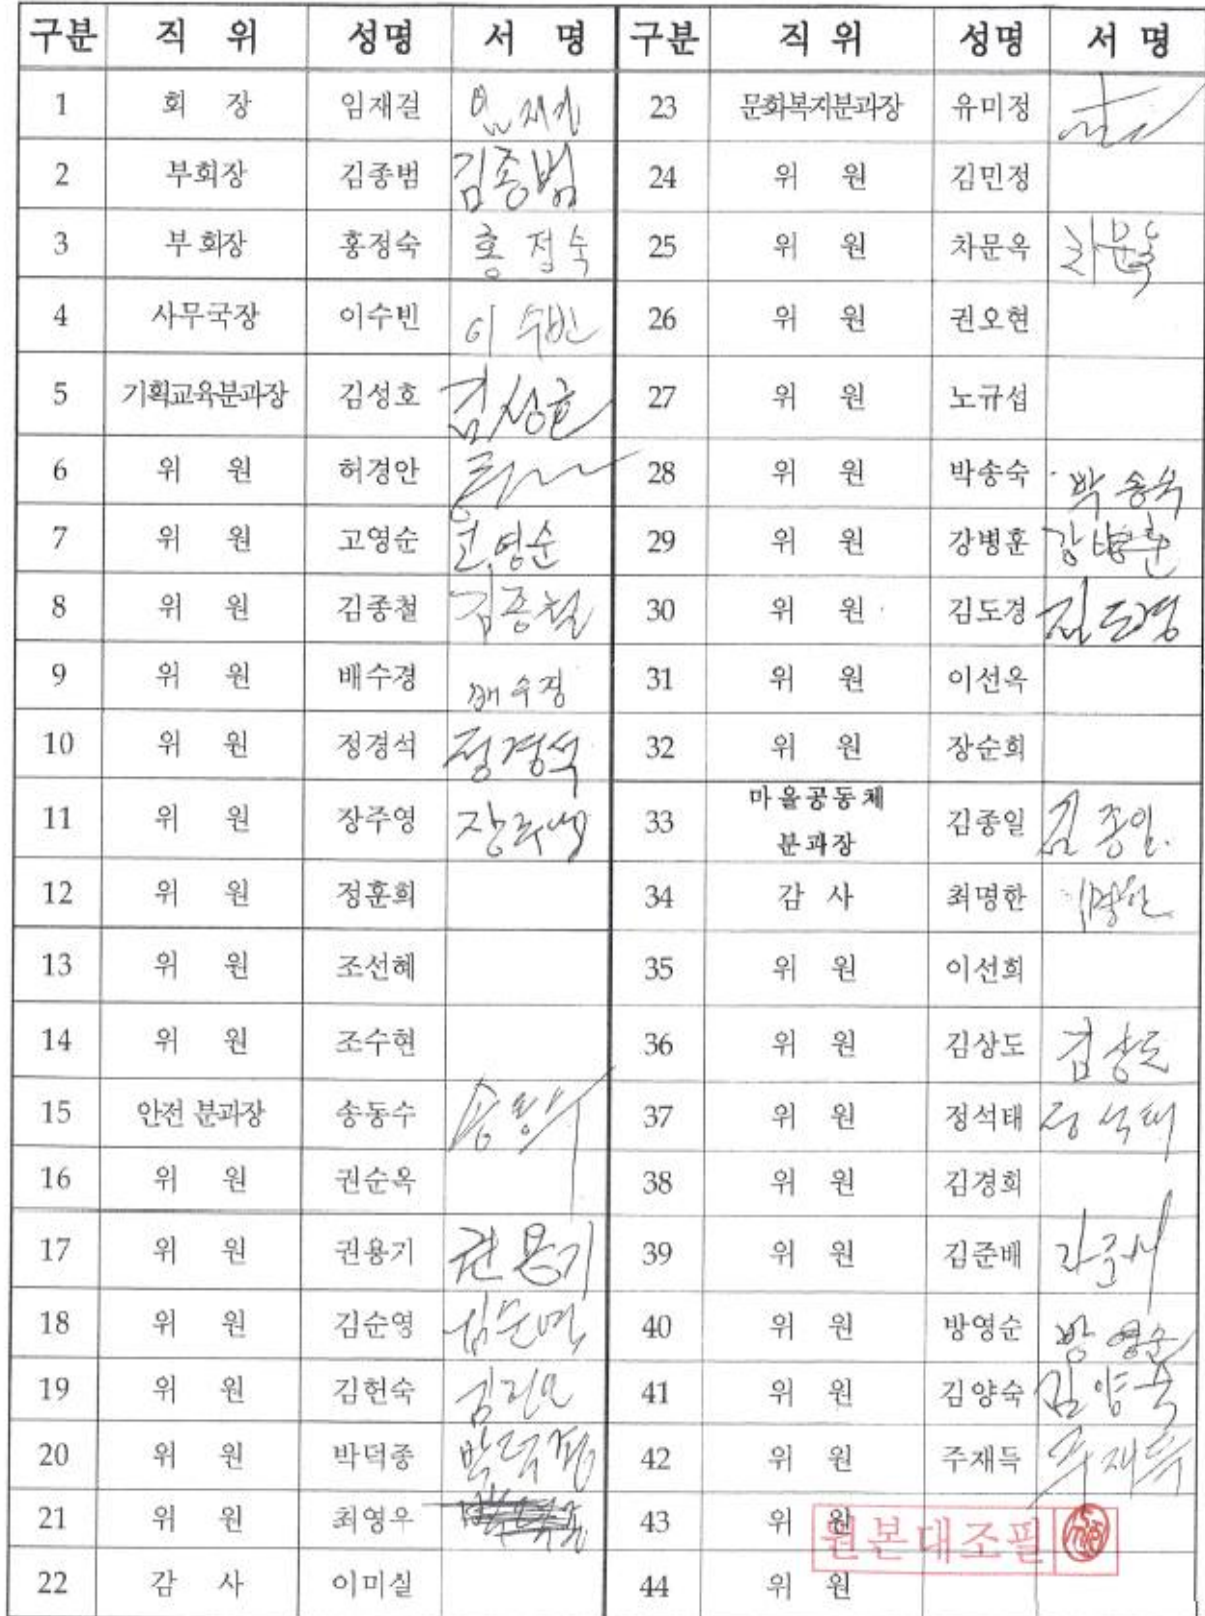 구분 직 위 성명 서 명 구분 직 위 성명 서 명
1 회 장 임재걸 임재걸 23 문화복지분과장 유미정
2 부회장 김종범 김종범 24 위 원 김민정
3 부회장 홍정숙 홍정숙 25 위 원 차문옥 차문옥
4 사무국장 이수빈 이수빈 26 위 원 권오현
5 기획교육분과장 김성호 김성호 27 위 원 노규섭
6 위 원 허경안 28 위 원 박송숙 박송숙
7 위 원 고영순 고영순 29 위 원 강병훈 강병훈
8 위 원 김종철 김종철 30 위 원 김도경 김도경
9 위 원 배수경 배수경 31 위 원 이선옥
10 위 원 정경석 정경석 32 위 원 장순희
11 위 원 장주영 장주영 33 마을공동체
분과장 김종일 김종일.
12 위 원 정훈희 34 감 사 최명한
13 위 원 조선혜 35 위 원 이선희
14 위 원 조수현 36 위 원 김상도 김상도
15 안전 분과장 송동수 송동수 37 위 원 정석태 정석태
16 위 원 권순옥 38 위 원 김경희
17 위 원 권용기 권용기 39 위 원 김준배
18 위 원 김순영 김순영 40 위 원 방영순 방영순
19 위 원 김헌숙 41 위 원 김양숙 김양숙
20 위 원 박덕종 박덕종 42 위 원 주재득 주재득
21 위 원 최영우 43 위 원
22 감 사 이미실 44 위 원
원본대조필